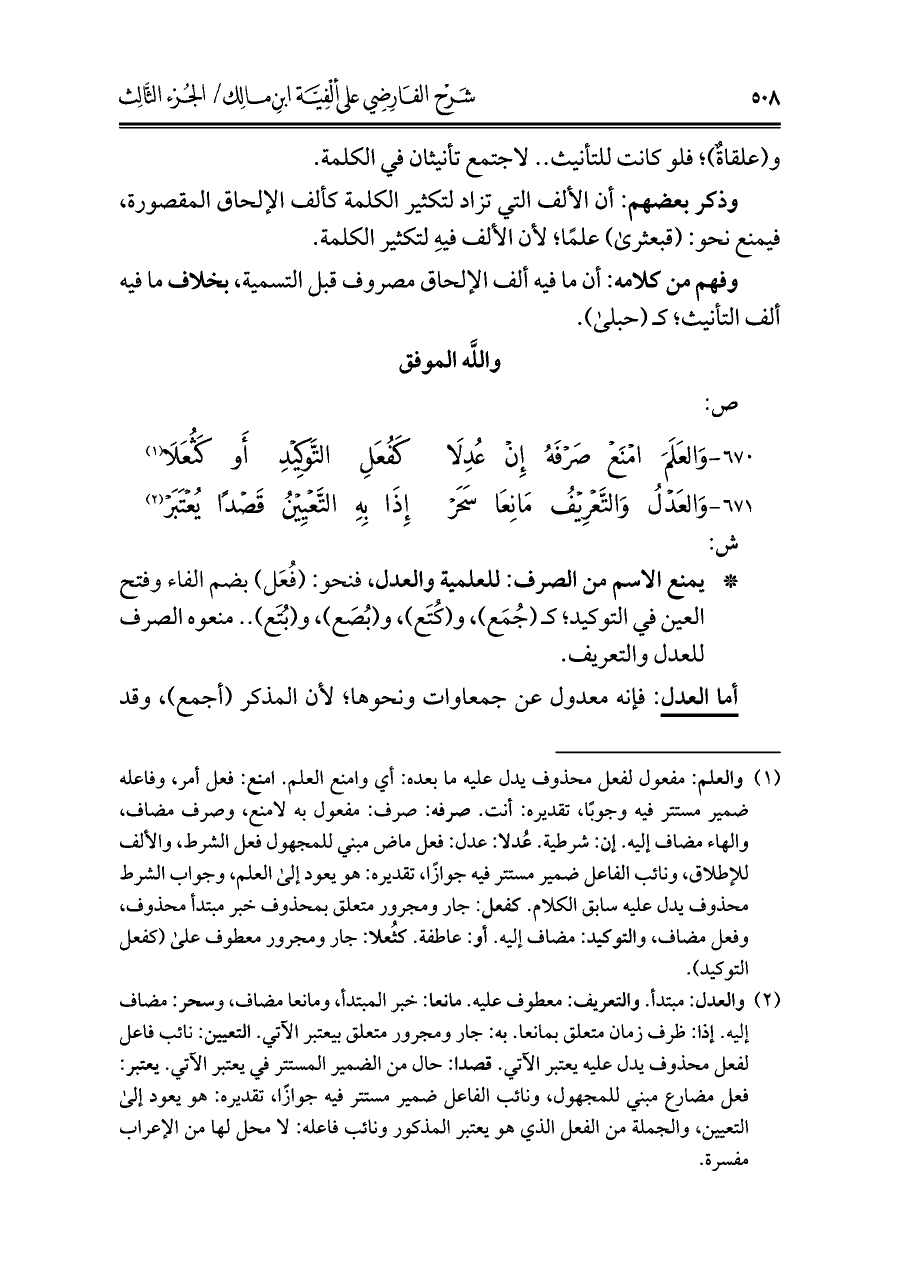 ٥٠٨ شَرْح الفَارِضِي عَلى ألْفِيَّة ابنِ مَالِك/ الجُزء الثَّالِث
و(علقاةٌ)؛ فلو كانت للتأنيث.. لاجتمع تأنيثان في الكلمة.
وذكر بعضهم: أن الألف التي تزاد لتكثير الكلمة كألف الإلحاق المقصورة،
فيمنع نحو: (قبعثرىٰ) علمًا؛ لأن الألف فيهِ لتكثير الكلمة.
وفهم من كلامه: أن ما فيه ألف الإلحاق مصروف قبل التسمية، بخلاف ما فيه
ألف التأنيث؛ كـ (حبلىٰ).
واللَّه الموفق
ص:
٦٧٠- وَالعَلَمَ امْنَعْ صَرْفَهُ إِنْ عُدِلَا كَفُعَلِ التَّوكِيْدِ أَو كَثُعَلَا(١)
٦٧١- وَالعَدْلُ وَالتَّعْرِيْفُ مَانِعَا سَحَرْ إِذَا بِهِ التَّعْيِيْنُ قَصْدًا يُعْتَبَرْ(٢)
ش:
* يمنع الاسم من الصرف: للعلمية والعدل، فنحو: (فُعَل) بضم الفاء وفتح
العين في التوكيد؛ كـ (جُمَع)، و(كُتَع)، و(بُصَع)، و(بُتَع).. منعوه الصرف
للعدل والتعريف.
أما العدل: فإنه معدول عن جمعاوات ونحوها؛ لأن المذكر (أجمع)، وقد
(١) والعلم: مفعول لفعل محذوف يدل عليه ما بعده: أي وامنع العلم. امنع: فعل أمر، وفاعله
ضمير مستتر فيه وجوبًا، تقديره: أنت. صرفه: صرف: مفعول به لامنع، وصرف مضاف،
والهاء مضاف إليه. إن: شرطية. عُدلا: عدل: فعل ماض مبني للمجهول فعل الشرط، والألف
للإطلاق، ونائب الفاعل ضمير مستتر فيه جوازًا، تقديره: هو يعود إلىٰ العلم، وجواب الشرط
محذوف يدل عليه سابق الكلام. كفعل: جار ومجرور متعلق بمحذوف خبر مبتدأ محذوف،
وفعل مضاف، والتوكيد: مضاف إليه. أو: عاطفة. كثُعلا: جار ومجرور معطوف علىٰ (كفعل
التوكيد).
(٢) والعدل: مبتدأ. والتعريف: معطوف عليه. مانعا: خبر المبتدأ، ومانعا مضاف، وسحر: مضاف
إليه. إذا: ظرف زمان متعلق بمانعا. به: جار ومجرور متعلق بيعتبر الآتي. التعيين: نائب فاعل
لفعل محذوف يدل عليه يعتبر الآتي. قصدا: حال من الضمير المستتر في يعتبر الآتي. يعتبر:
فعل مضارع مبني للمجهول، ونائب الفاعل ضمير مستتر فيه جوازًا، تقديره: هو يعود إلىٰ
التعيين، والجملة من الفعل الذي هو يعتبر المذكور ونائب فاعله: لا محل لها من الإعراب
مفسرة.